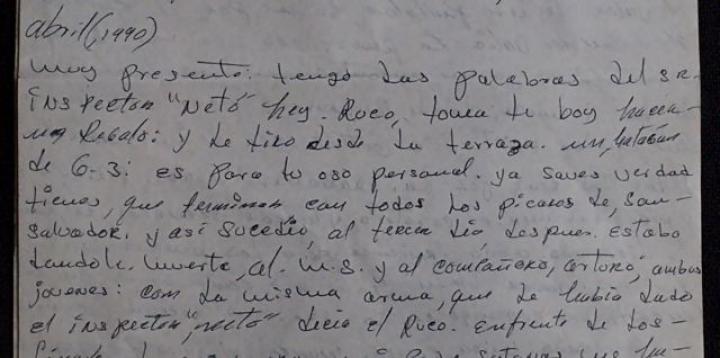 abril(,1990)
muy presente: tengo Las palabras del sR.
ins pector "Neto" hey. Ruco, toma te boy hacer
un Regalo: y Le tiro desde La terraza. un,
de 6-3: es para tu oso personal. ya saves verdad
tienes, que terminar con todos Los picaros de, San-
Salvador. y así Sucedio, al tercer dia, despues. Estaba
dandole. muerte, al. M.S. y al compañero, arturo, ambos
jovenes: com La misma arma, que Le habia dado
el ins pector, "necto" decia el Ruco. enfrente de Dos-